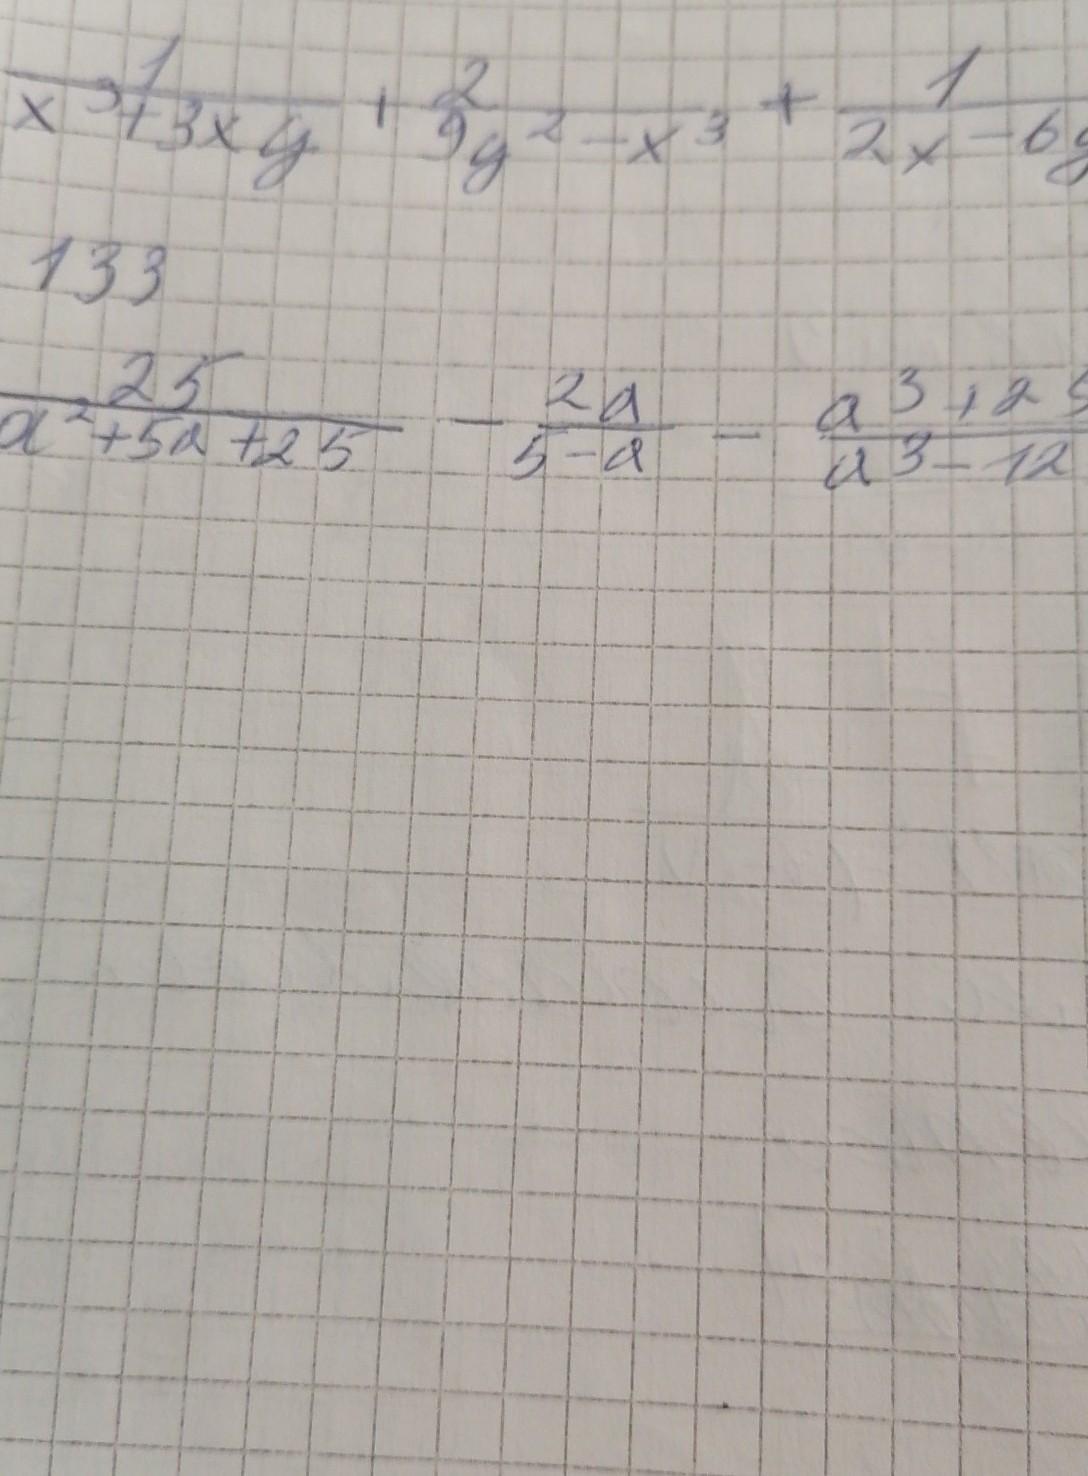 1/(x³+3xy) + 2/(9y²-x³) + 1/(2x-6y
133
25/(a²+5a+25) - 2a/(5-a) - (a³+25)/(a³-12